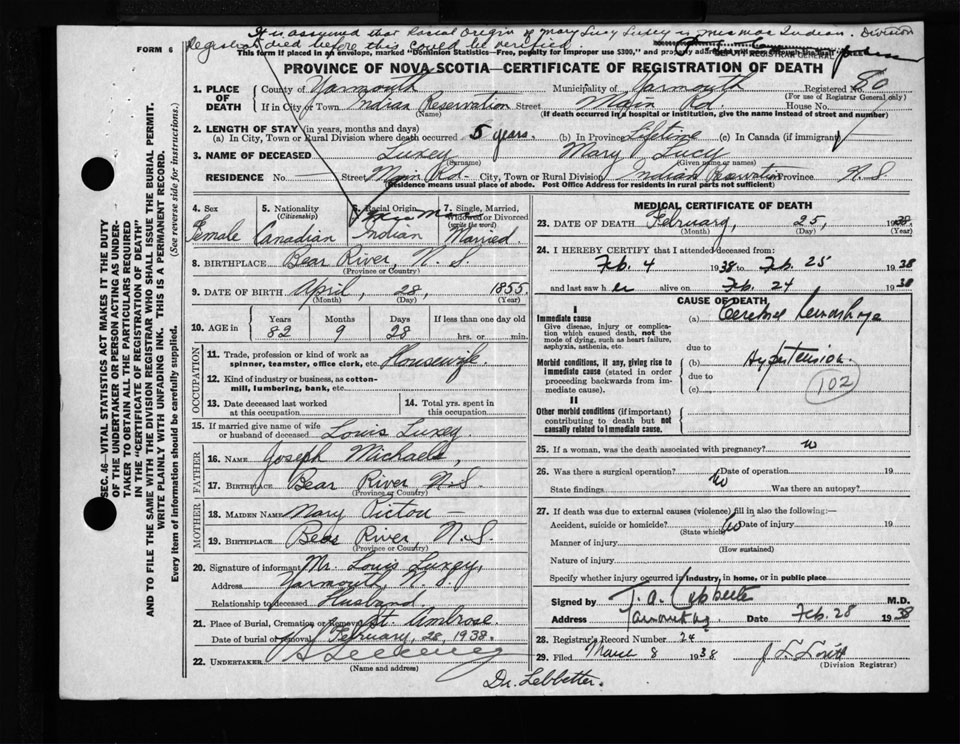 It is assumed that Racial Origin of Mary Lucy Luxey is Mic Mac Indian. Division
Registrar died before this could be verified
FORM 6
This form if placed in an envelope, marked "Dominion Statistics—Free, penalty for improper use $300," and property
REGISTRAR GENERAL
PROVINCE OF NOVA SCOTIA—CERTIFICATE OF REGISTRATION OF DEATH
1. PLACE OF DEATH County of Yarmouth Municipality of Yarmouth Registered No. 80
(For use of Registrar General only)
If in City or Town Indian Reservation Street Main Rd. House No.
(Name) (If death occurred in a hospital or institution, give the name instead of street and number)
2. LENGTH OF STAY (in years, months and days)
(a) In City, Town or Rural Division where death occurred 5 years. (b) In Province Lifetime (c) In Canada (if immigrant)
3. NAME OF DECEASED Luxey Mary Lucy
(Surname) (Given name or names)
RESIDENCE No. — Street Main Rd. City, Town or Rural Division Indian Reservation Province N.S.
(Residence means usual place of abode. Post Office Address for residents in rural parts not sufficient)
4. Sex 5. Nationality (Citizenship) 6. Racial Origin 7. Single, Married, Widowed or Divorced (write the word)
Mic Mac
Female Canadian Indian Married.
8. BIRTHPLACE Bear River, N.S.
(Province or Country)
9. DATE OF BIRTH April, 28, 1855
(Month) (Day) (Year)
10. AGE in Years Months Days If less than one day old
82 9 28 hrs. or min.
OCCUPATION
11. Trade, profession or kind of work as spinner, teamster, office clerk, etc. Housewife.
12. Kind of industry or business, as cotton-mill, lumbering, bank, etc.
13. Date deceased last worked at this occupation
14. Total yrs. spent in this occupation
15. If married give name of wife or husband of deceased Louis Luxey.
FATHER
16. Name Joseph Michaels,
17. Birthplace Bear River N.S.
(Province or Country)
MOTHER
18. Maiden Name Mary Pictou —
19. Birthplace Bear River, N.S.
(Province or Country)
20. Signature of informant Mr. Louis Luxey,
Address Yarmouth N.S.
Relationship to deceased Husband
21. Place of Burial, Cremation or Removal St. Ambrose.
Date of burial or removal February, 28, 1938.
22. UNDERTAKER
(Name and address)
Dr. Lebbetter.
MEDICAL CERTIFICATE OF DEATH
23. DATE OF DEATH February, 25, 1938
(Month) (Day) (Year)
24. I HEREBY CERTIFY that I attended deceased from:
Feb. 4 1938 to Feb. 25 1938
and last saw her alive on Feb. 24 1938
CAUSE OF DEATH
I
Immediate cause (a) Cerebral hemorrhage
Give disease, injury or complication which caused death, not the mode of dying, such as heart failure, asphyxia, asthenia, etc.
due to
Morbid conditions, if any, giving rise to immediate cause (stated in order proceeding backwards from immediate cause).
(b) Hypertension.
due to
(c)
102
II
Other morbid conditions (if important) contributing to death but not causally related to immediate cause.
25. If a woman, was the death associated with pregnancy? no
26. Was there a surgical operation? no Date of operation 19
State findings Was there an autopsy?
27. If death was due to external causes (violence) fill in also the following:—
Accident, suicide or homicide? no Date of injury 19
(State which)
Manner of injury
(How sustained)
Nature of injury
Specify whether injury occurred in industry, in home, or in public place
Signed by M.D.
Address Date Feb. 28 1938
28. Registrar's Record Number 24
29. Filed March 8 1938
(Division Registrar)
SEC. 46—VITAL STATISTICS ACT MAKES IT THE DUTY
OF THE UNDERTAKER OR PERSON ACTING AS UNDER-
TAKER TO OBTAIN ALL THE PARTICULARS REQUIRED
IN THE "CERTIFICATE OF REGISTRATION OF DEATH"
AND TO FILE THE SAME WITH THE DIVISION REGISTRAR WHO SHALL ISSUE THE BURIAL PERMIT.
WRITE PLAINLY WITH UNFADING INK. THIS IS A PERMANENT RECORD.
Every item of information should be carefully supplied. (See reverse side for instructions.)